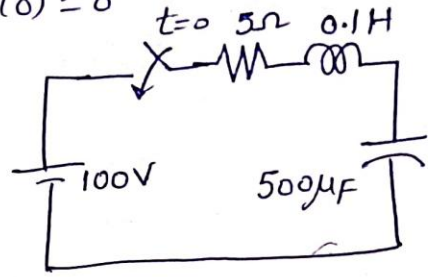 (0) = 0
t=0 5Ω 0.1H
100V
500μF